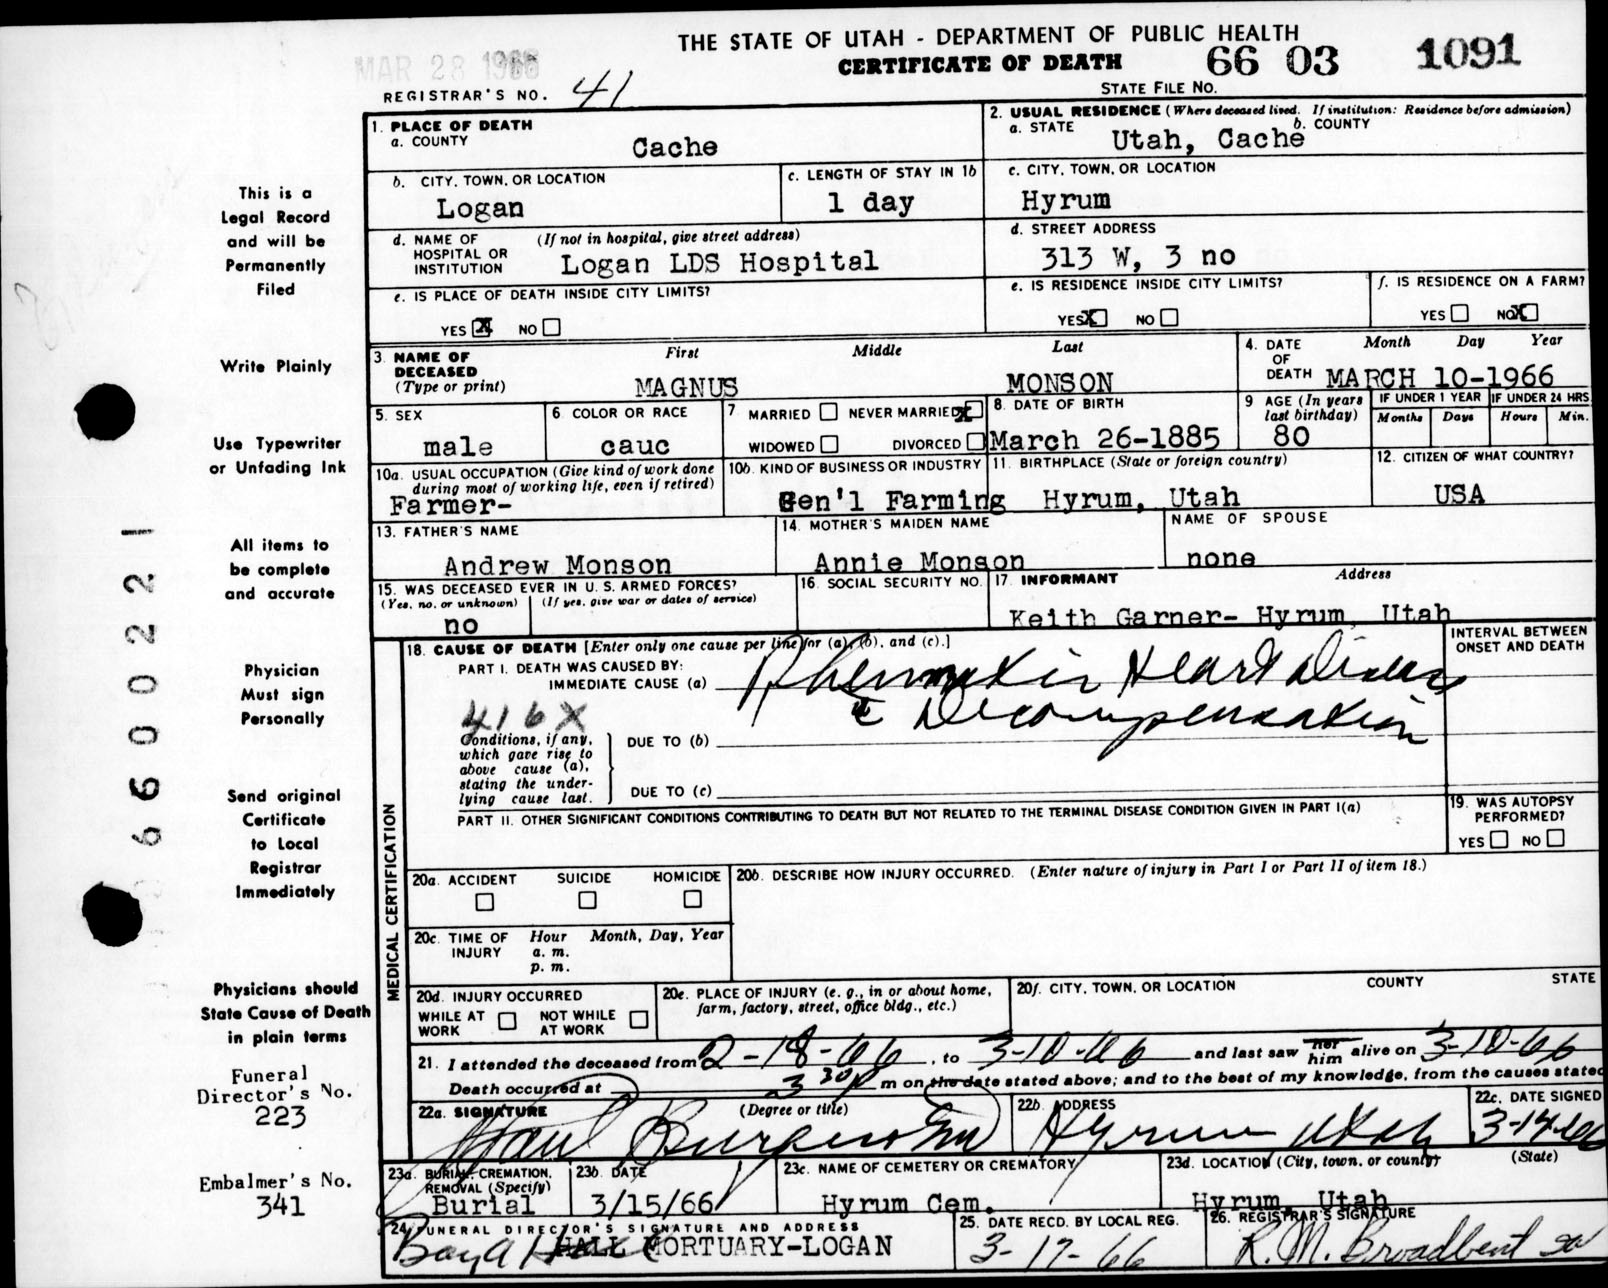 THE STATE OF UTAH - DEPARTMENT OF PUBLIC HEALTH
CERTIFICATE OF DEATH
66 03 1091
STATE FILE NO.
MAR 28 1966
REGISTRAR'S NO. 41
This is a
Legal Record
and will be
Permanently
Filed
Write Plainly
Use Typewriter
or Unfading Ink
All items to
be complete
and accurate
Physician
Must sign
Personally
Send original
Certificate
to Local
Registrar
Immediately
Physicians should
State Cause of Death
in plain terms
Funeral
Director's No.
223
Embalmer's No.
341
6600221
1. PLACE OF DEATH
a. COUNTY
Cache
2. USUAL RESIDENCE (Where deceased lived. If institution: Residence before admission)
a. STATE b. COUNTY
Utah, Cache
b. CITY, TOWN, OR LOCATION
Logan
c. LENGTH OF STAY IN 1b
1 day
c. CITY, TOWN, OR LOCATION
Hyrum
d. NAME OF (If not in hospital, give street address)
HOSPITAL OR
INSTITUTION Logan LDS Hospital
d. STREET ADDRESS
313 W, 3 no
e. IS PLACE OF DEATH INSIDE CITY LIMITS?
YES X NO
e. IS RESIDENCE INSIDE CITY LIMITS?
YES X NO
f. IS RESIDENCE ON A FARM?
YES NO X
3. NAME OF
DECEASED
(Type or print)
First Middle Last
MAGNUS MONSON
4. DATE
OF
DEATH
Month Day Year
MARCH 10-1966
5. SEX
male
6. COLOR OR RACE
cauc
7. MARRIED NEVER MARRIED X
WIDOWED DIVORCED
8. DATE OF BIRTH
March 26-1885
9. AGE (In years
last birthday)
80
IF UNDER 1 YEAR IF UNDER 24 HRS.
Months Days Hours Min.
10a. USUAL OCCUPATION (Give kind of work done
during most of working life, even if retired)
Farmer-
10b. KIND OF BUSINESS OR INDUSTRY
Gen'l Farming
11. BIRTHPLACE (State or foreign country)
Hyrum, Utah
12. CITIZEN OF WHAT COUNTRY?
USA
13. FATHER'S NAME
Andrew Monson
14. MOTHER'S MAIDEN NAME
Annie Monson
NAME OF SPOUSE
none
15. WAS DECEASED EVER IN U. S. ARMED FORCES?
(Yes, no, or unknown) (If yes, give war or dates of service)
no
16. SOCIAL SECURITY NO.
17. INFORMANT Address
Keith Garner- Hyrum, Utah
MEDICAL CERTIFICATION
18. CAUSE OF DEATH [Enter only one cause per line for (a), (b), and (c).]
INTERVAL BETWEEN
ONSET AND DEATH
PART I. DEATH WAS CAUSED BY:
IMMEDIATE CAUSE (a) Rheumatic Heart Disease
c̄ Decompensation
416X
Conditions, if any,
which gave rise to
above cause (a),
stating the under-
lying cause last.
DUE TO (b)
DUE TO (c)
PART II. OTHER SIGNIFICANT CONDITIONS CONTRIBUTING TO DEATH BUT NOT RELATED TO THE TERMINAL DISEASE CONDITION GIVEN IN PART I(a)
19. WAS AUTOPSY
PERFORMED?
YES NO
20a. ACCIDENT SUICIDE HOMICIDE
20b. DESCRIBE HOW INJURY OCCURRED. (Enter nature of injury in Part I or Part II of item 18.)
20c. TIME OF Hour Month, Day, Year
INJURY a. m.
p. m.
20d. INJURY OCCURRED
WHILE AT NOT WHILE
WORK AT WORK
20e. PLACE OF INJURY (e. g., in or about home,
farm, factory, street, office bldg., etc.)
20f. CITY, TOWN, OR LOCATION COUNTY STATE
21. I attended the deceased from 2-18-66, to 3-10-66 and last saw her him alive on 3-10-66
Death occurred at 3 30 p m on the date stated above; and to the best of my knowledge, from the causes stated
22a. SIGNATURE (Degree or title)
Paul Burgess MD
22b. ADDRESS
Hyrum Utah
22c. DATE SIGNED
3-14-66
23a. BURIAL, CREMATION,
REMOVAL (Specify)
Burial
23b. DATE
3/15/66
23c. NAME OF CEMETERY OR CREMATORY
Hyrum Cem.
23d. LOCATION (City, town, or county) (State)
Hyrum, Utah
24. FUNERAL DIRECTOR'S SIGNATURE AND ADDRESS
HALL MORTUARY-LOGAN
25. DATE RECD. BY LOCAL REG.
3-17-66
26. REGISTRAR'S SIGNATURE
R. M. Broadbent